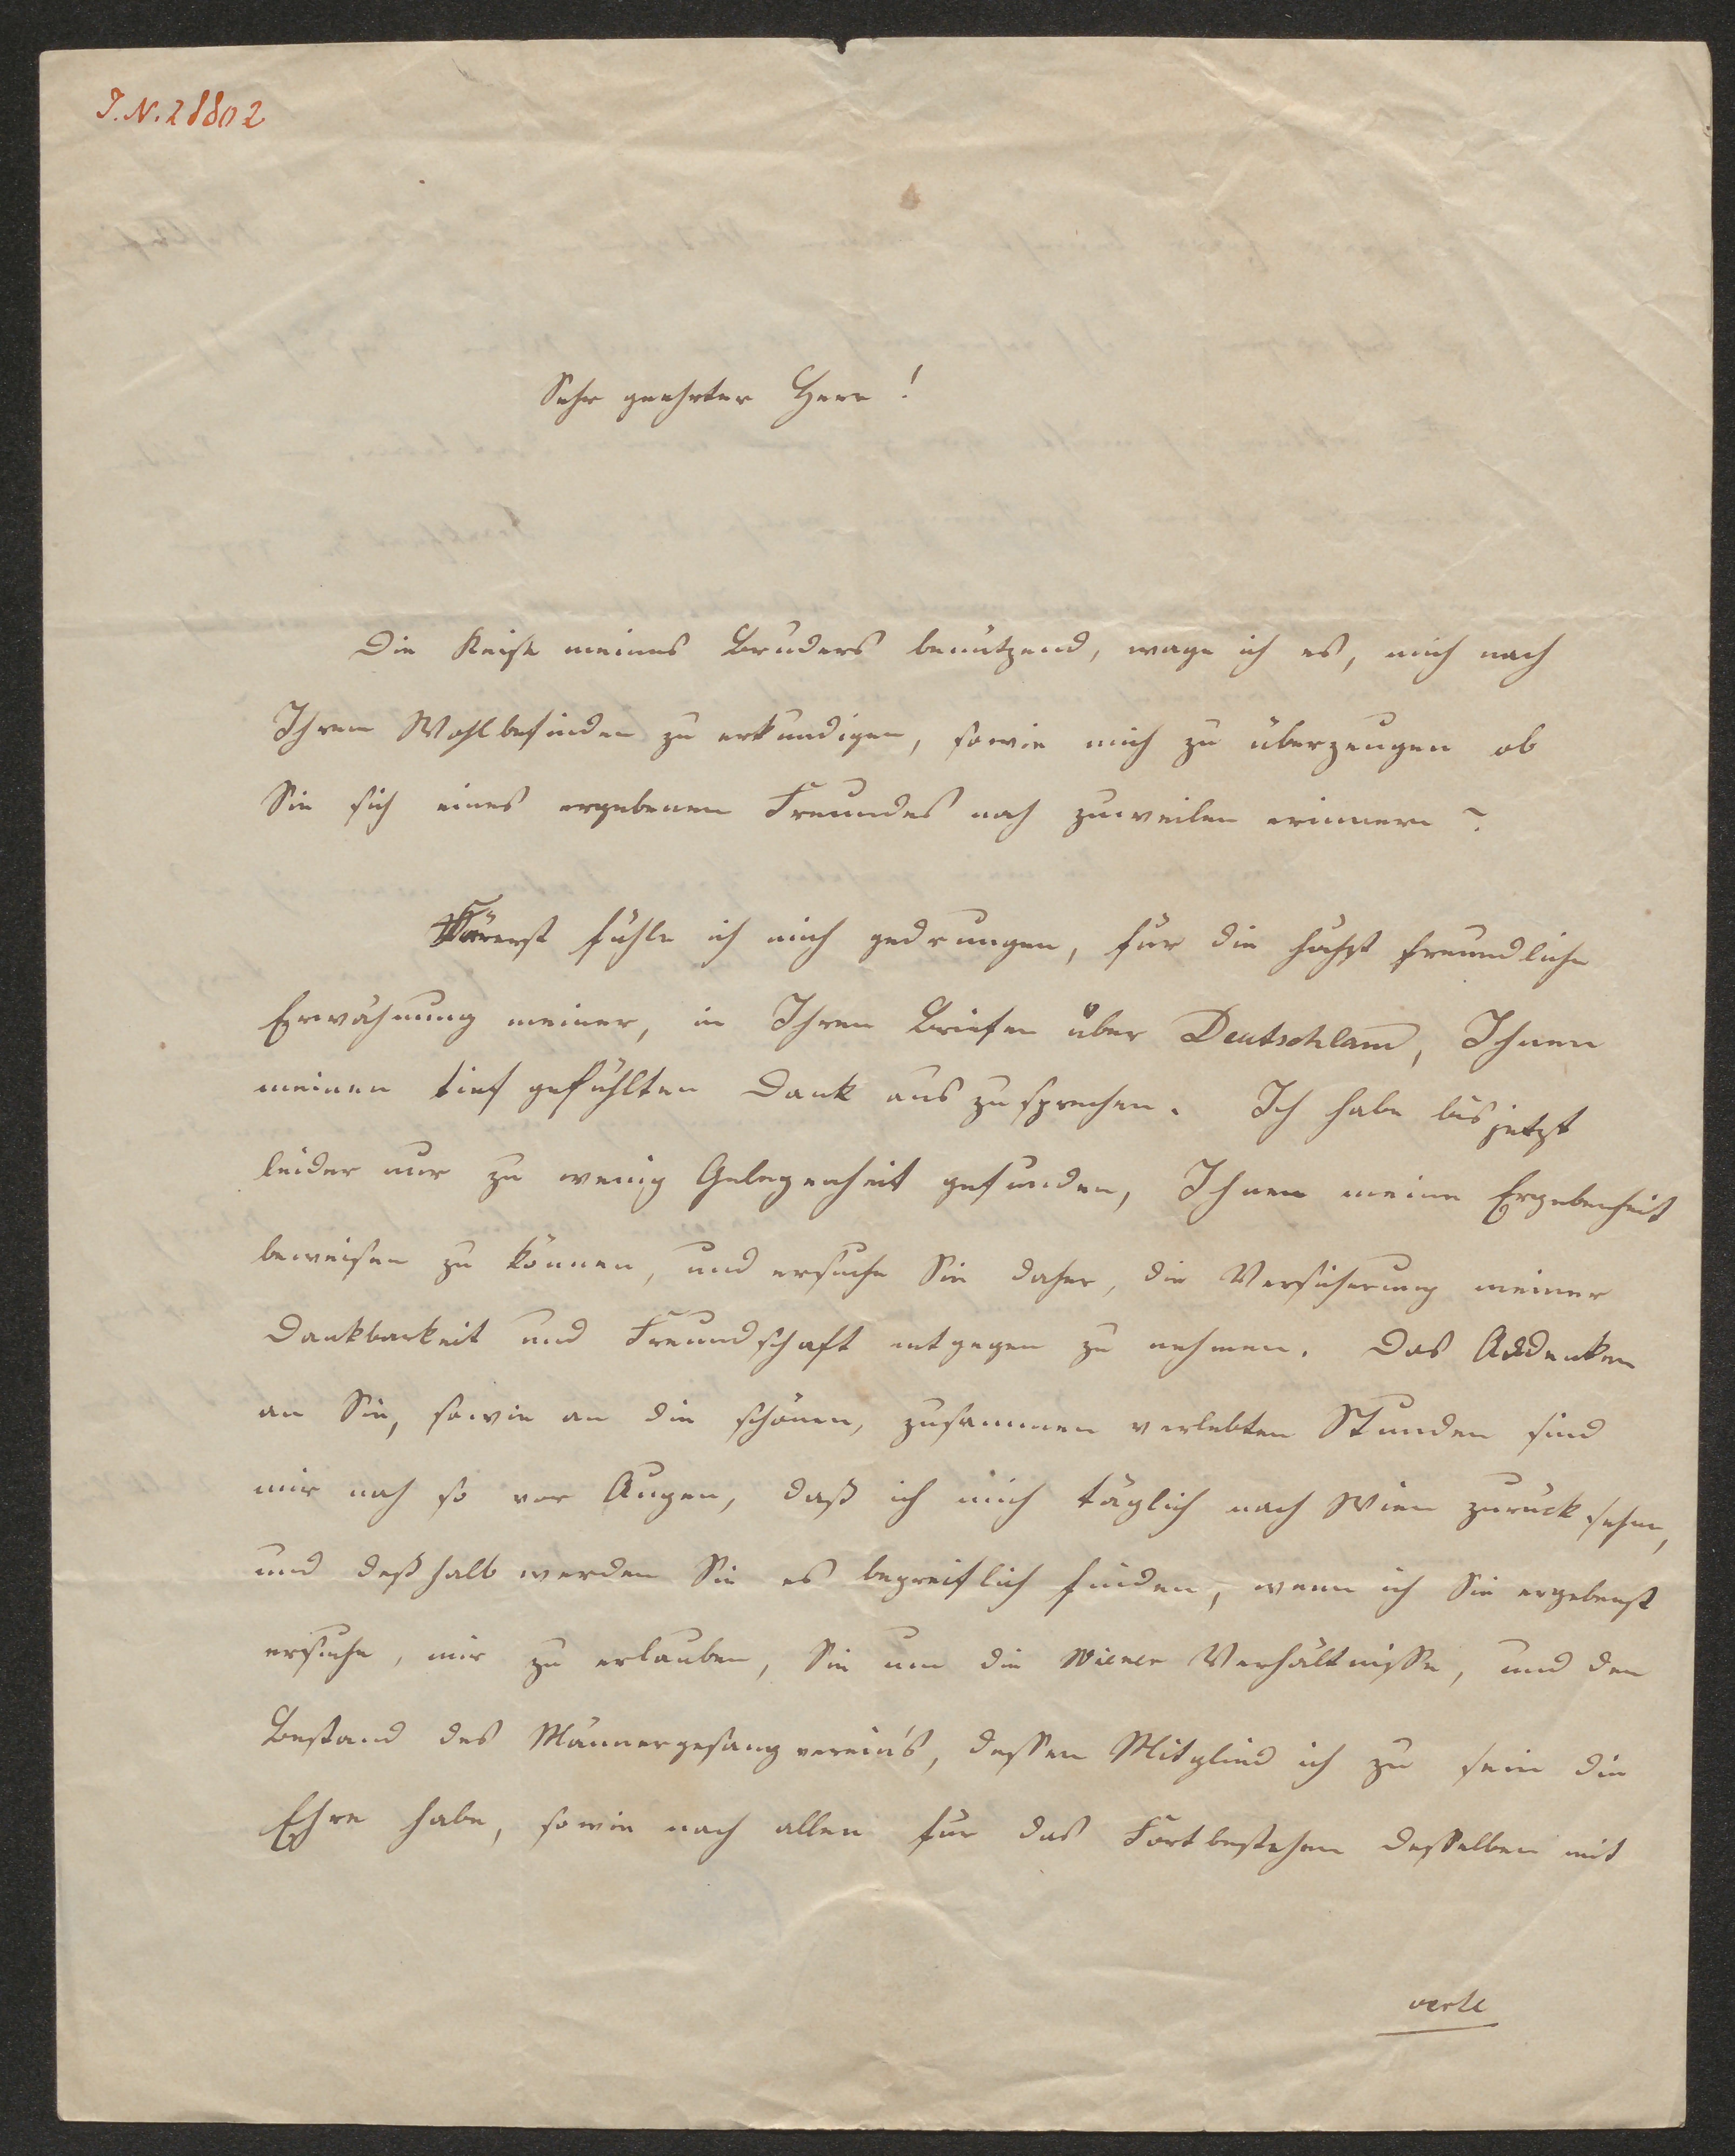 I.N. 28802
Sehr geehrter Herr!
Die Reise meines Bruders benützend, wage ich es, mich nach
Ihrem Wohlbefinden zu erkundigen, sowie mich zu überzeugen ob
Sie sich eines ergebenen Freundes noch zuweilen erinnern?
fühle ich mich gedrungen, für die höchst freundliche
Erwähnung meiner, in Ihren Briefen über Deutschland, Ihnen
meinen tief gefühlten Dank aus zu sprechen. Ich habe bis jetzt
leider nur zu wenig Gelegenheit gefunden, Ihnen meine Ergebenheit
beweisen zu können, und ersuche Sie daher, die Versicherung meiner
Dankbarkeit und Freundschaft entgegen zu nehmen. Das Andenken
an Sie, sowie an die schönen, zusammen verlebten Stunden sind
mir noch so vor Augen, daß ich mich täglich nach Wien zurück sehne,
und deßhalb werden Sie es begreiflich finden, wenn ich Sie ergebenst
ersuche, mir zu erlauben, Sie um die Wiener Verhältnisse, und den
Bestand des Männergesangverein's, dessen Mitglied ich zu sein die
Ehre habe, sowie nach allen für das Fortbestehen desselben mit
verte